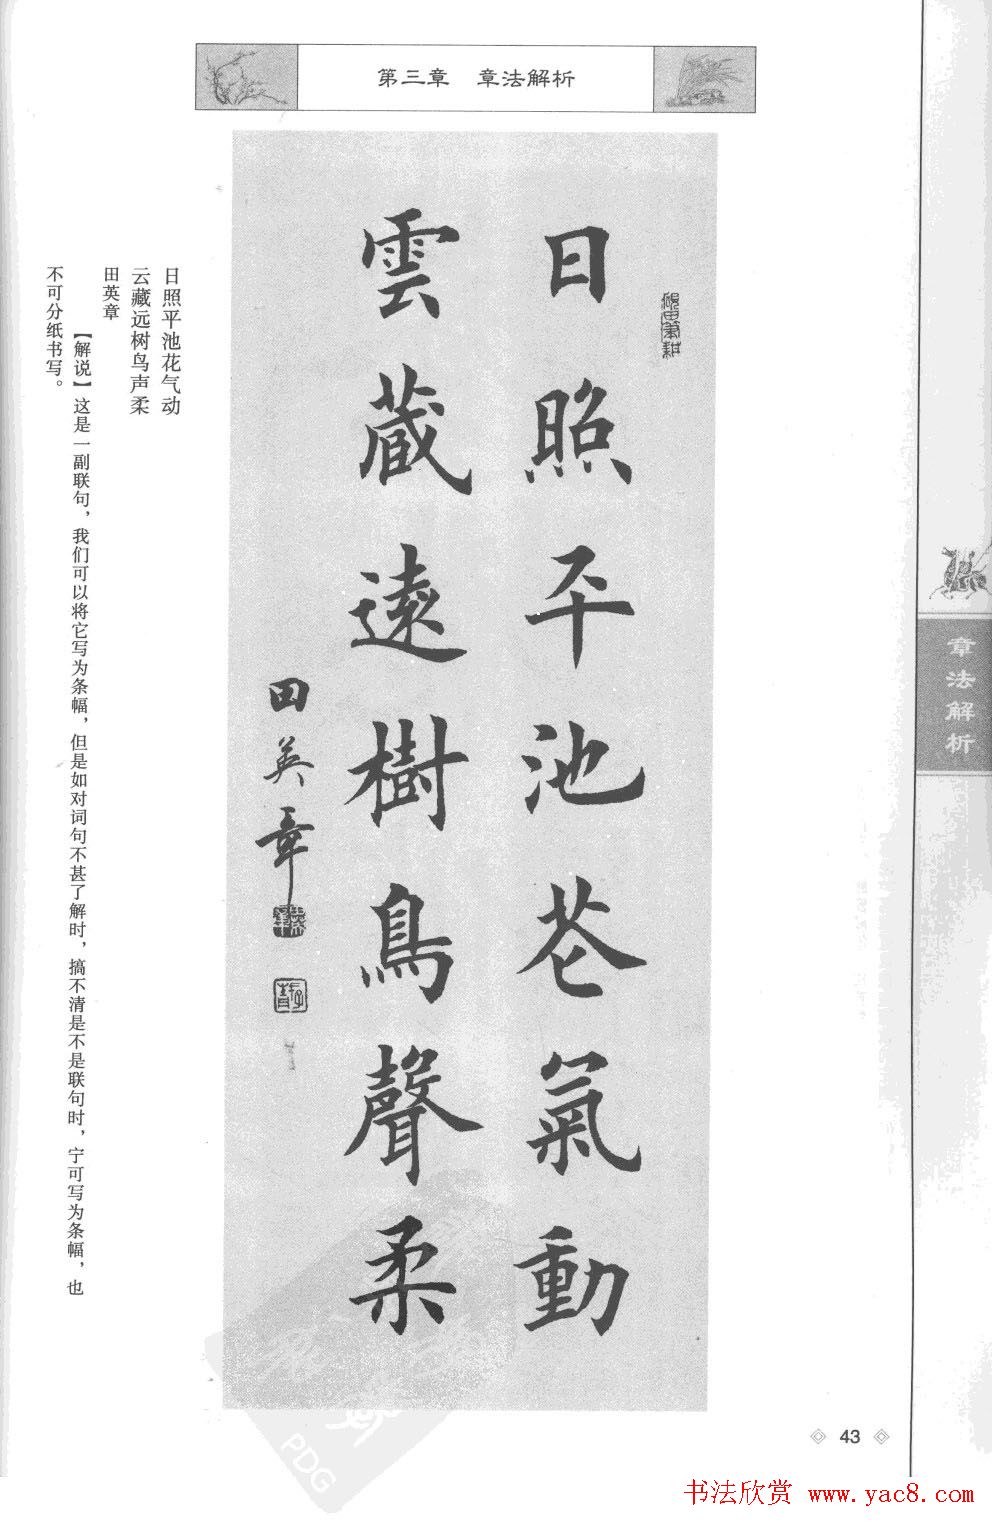 第三章 章法解析
日照平池花氣動
雲藏遠樹鳥聲柔
田英章
日照平池花气动
云藏远树鸟声柔
田英章
【解说】这是一副联句，我们可以将它写为条幅，但是如对词句不甚了解时，搞不清是不是联句时，宁可写为条幅，也
不可分纸书写。
章法解析
43
PDG
书法欣赏 www.yac8.com